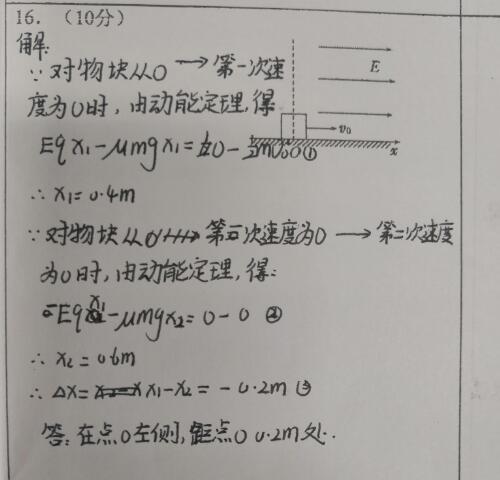 16. （10分）
解:
∵ 对物块从O → 第一次速
度为0时，由动能定理，得
Eqx₁-μmgx₁=0-½mv₀² ①
∴ x₁=0.4m
∵ 对物块从 第一次速度为0 → 第二次速度
为0时，由动能定理，得:
-Eqx₁-μmgx₂=0-0 ②
∴ x₂=0.6m
∴ Δx=x₁-x₂=-0.2m ③
答：在点O左侧，距点O 0.2m处.
E
v₀
x